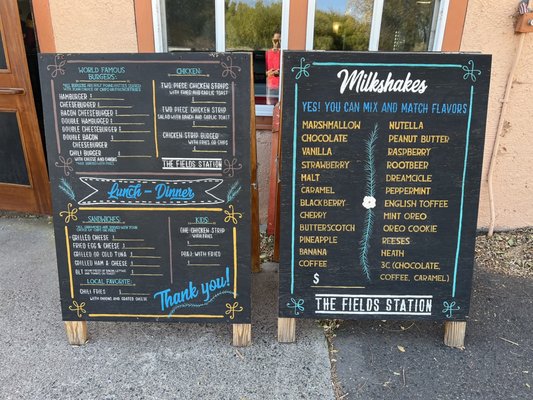 WORLD FAMOUS
BURGERS:
HAMBURGER
CHEESEBURGER
BACON CHEESEBURGER
DOUBLE HAMBURGER
DOUBLE CHEESEBURGER
DOUBLE BACON
CHEESEBURGER
CHILI BURGER
WITH CHEESE AND ONIONS
CHICKEN:
TWO PIECE CHICKEN STRIPS
WITH FRIES AND GARLIC TOAST
TWO PIECE CHICKEN STRIP
SALAD WITH RANCH AND GARLIC TOAST
CHICKEN STRIP BURGER
WITH FRIES OR CHIPS
THE FIELDS STATION
Lunch - Dinner
SANDWICHES:
GRILLED CHEESE
FRIED EGG & CHEESE
GRILLED OR COLD TUNA
GRILLED HAM & CHEESE
BLT
LOCAL FAVORITE:
CHILI FRIES
WITH ONIONS AND GRATED CHEESE
KIDS:
ONE CHICKEN STRIP
WITH FRIES
PB&J WITH FRIES
Thank you!
Milkshakes
YES! YOU CAN MIX AND MATCH FLAVORS
MARSHMALLOW
CHOCOLATE
VANILLA
STRAWBERRY
MALT
CARAMEL
BLACKBERRY
CHERRY
BUTTERSCOTCH
PINEAPPLE
BANANA
COFFEE
NUTELLA
PEANUT BUTTER
RASPBERRY
ROOTBEER
DREAMCICLE
PEPPERMINT
ENGLISH TOFFEE
MINT OREO
OREO COOKIE
REESES
HEATH
3C (CHOCOLATE,
COFFEE, CARAMEL)
$
THE FIELDS STATION